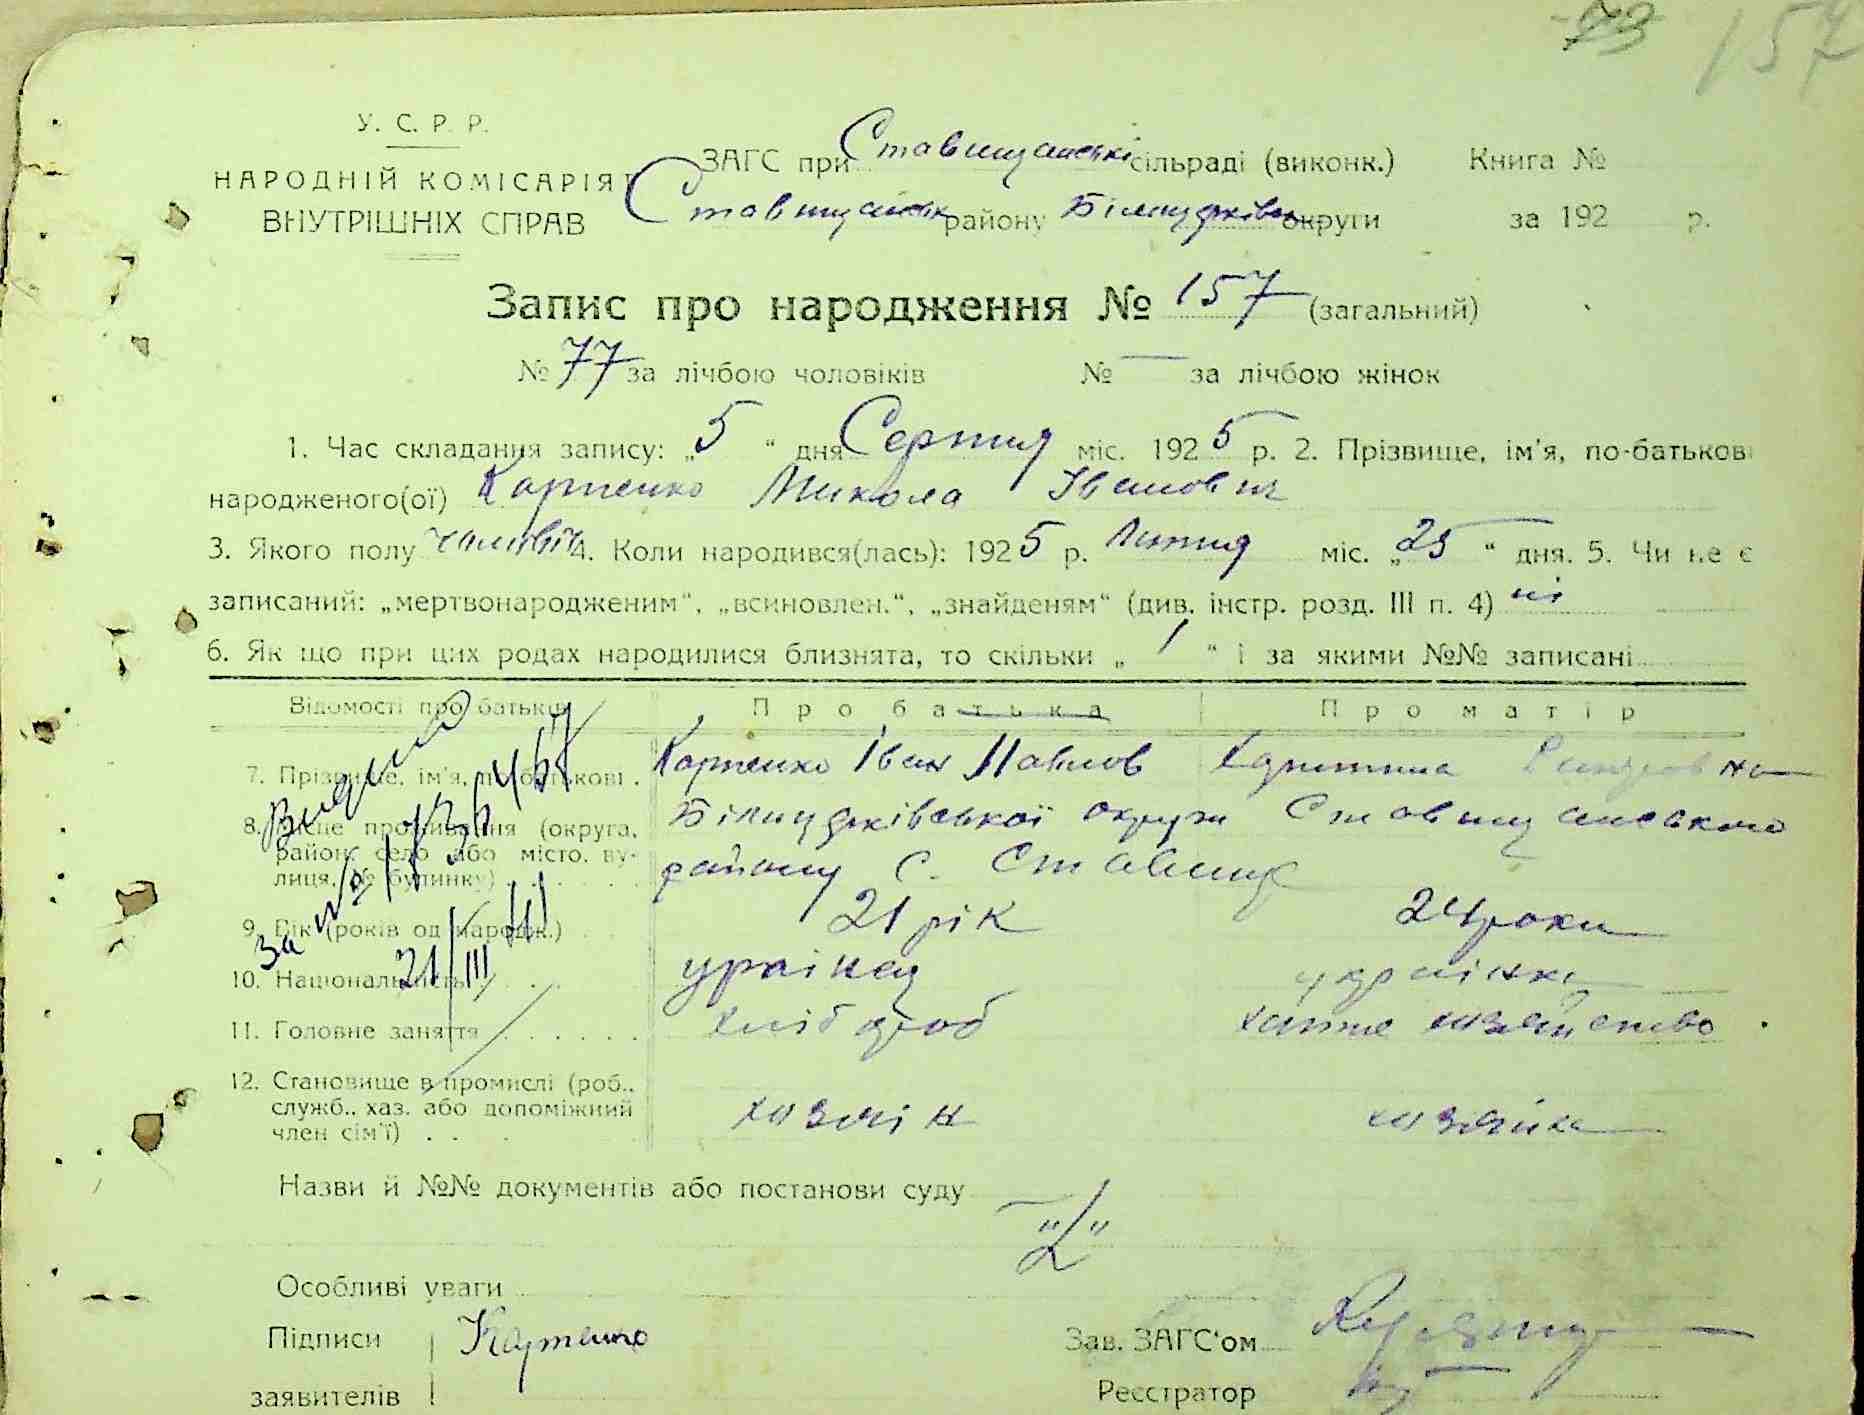 73 157
У. С. Р. Р.
НАРОДНІЙ КОМІСАРІЯТ
ВНУТРІШНІХ СПРАВ
ЗАГС при Ставищанські сільраді (виконк.) Книга №
Ставищанськ району Білоцерківськ округи за 192 р.
Запис про народження № 157 (загальний)
№ 77 за лічбою чоловіків № — за лічбою жінок
1. Час складання запису: „5“ дня Серпня міс. 1925 р. 2. Прізвище, ім'я, по-батькові
народженого(ої) Карпенко Микола Іванович
3. Якого полу чоловіч 4. Коли народився(лась): 1925 р. Липня міс. „25“ дня. 5. Чи не є
записаний: „мертвонародженим“, „всиновлен.“, „знайденям“ (див. інстр. розд. III п. 4) ні
6. Як що при цих родах народилися близнята, то скільки „1“ і за якими №№ записані
Відомості про батьків Про батька Про матір
7. Прізвище, ім'я, по-батькові . Карпенко Іван Павлов Христина
8. Місце проживання (округа, Білоцерківської округи Ставищанського
район, село або місто, ву- району с. Ставище
лиця, № будинку)
9. Вік (років од народж.) 21 рік 24 роки
10. Національність україНец українка
11. Головне заняття хлібороб хатне хозяйство
12. Становище в промислі (роб.,
служб., хаз. або допоміжний хозяїн хозяйка
член сім'ї)
Видано
за №
21/III 41
Назви й №№ документів або постанови суду
Особливі уваги
Підписи Карпенко Зав. ЗАГС'ом
заявителів Реєстратор